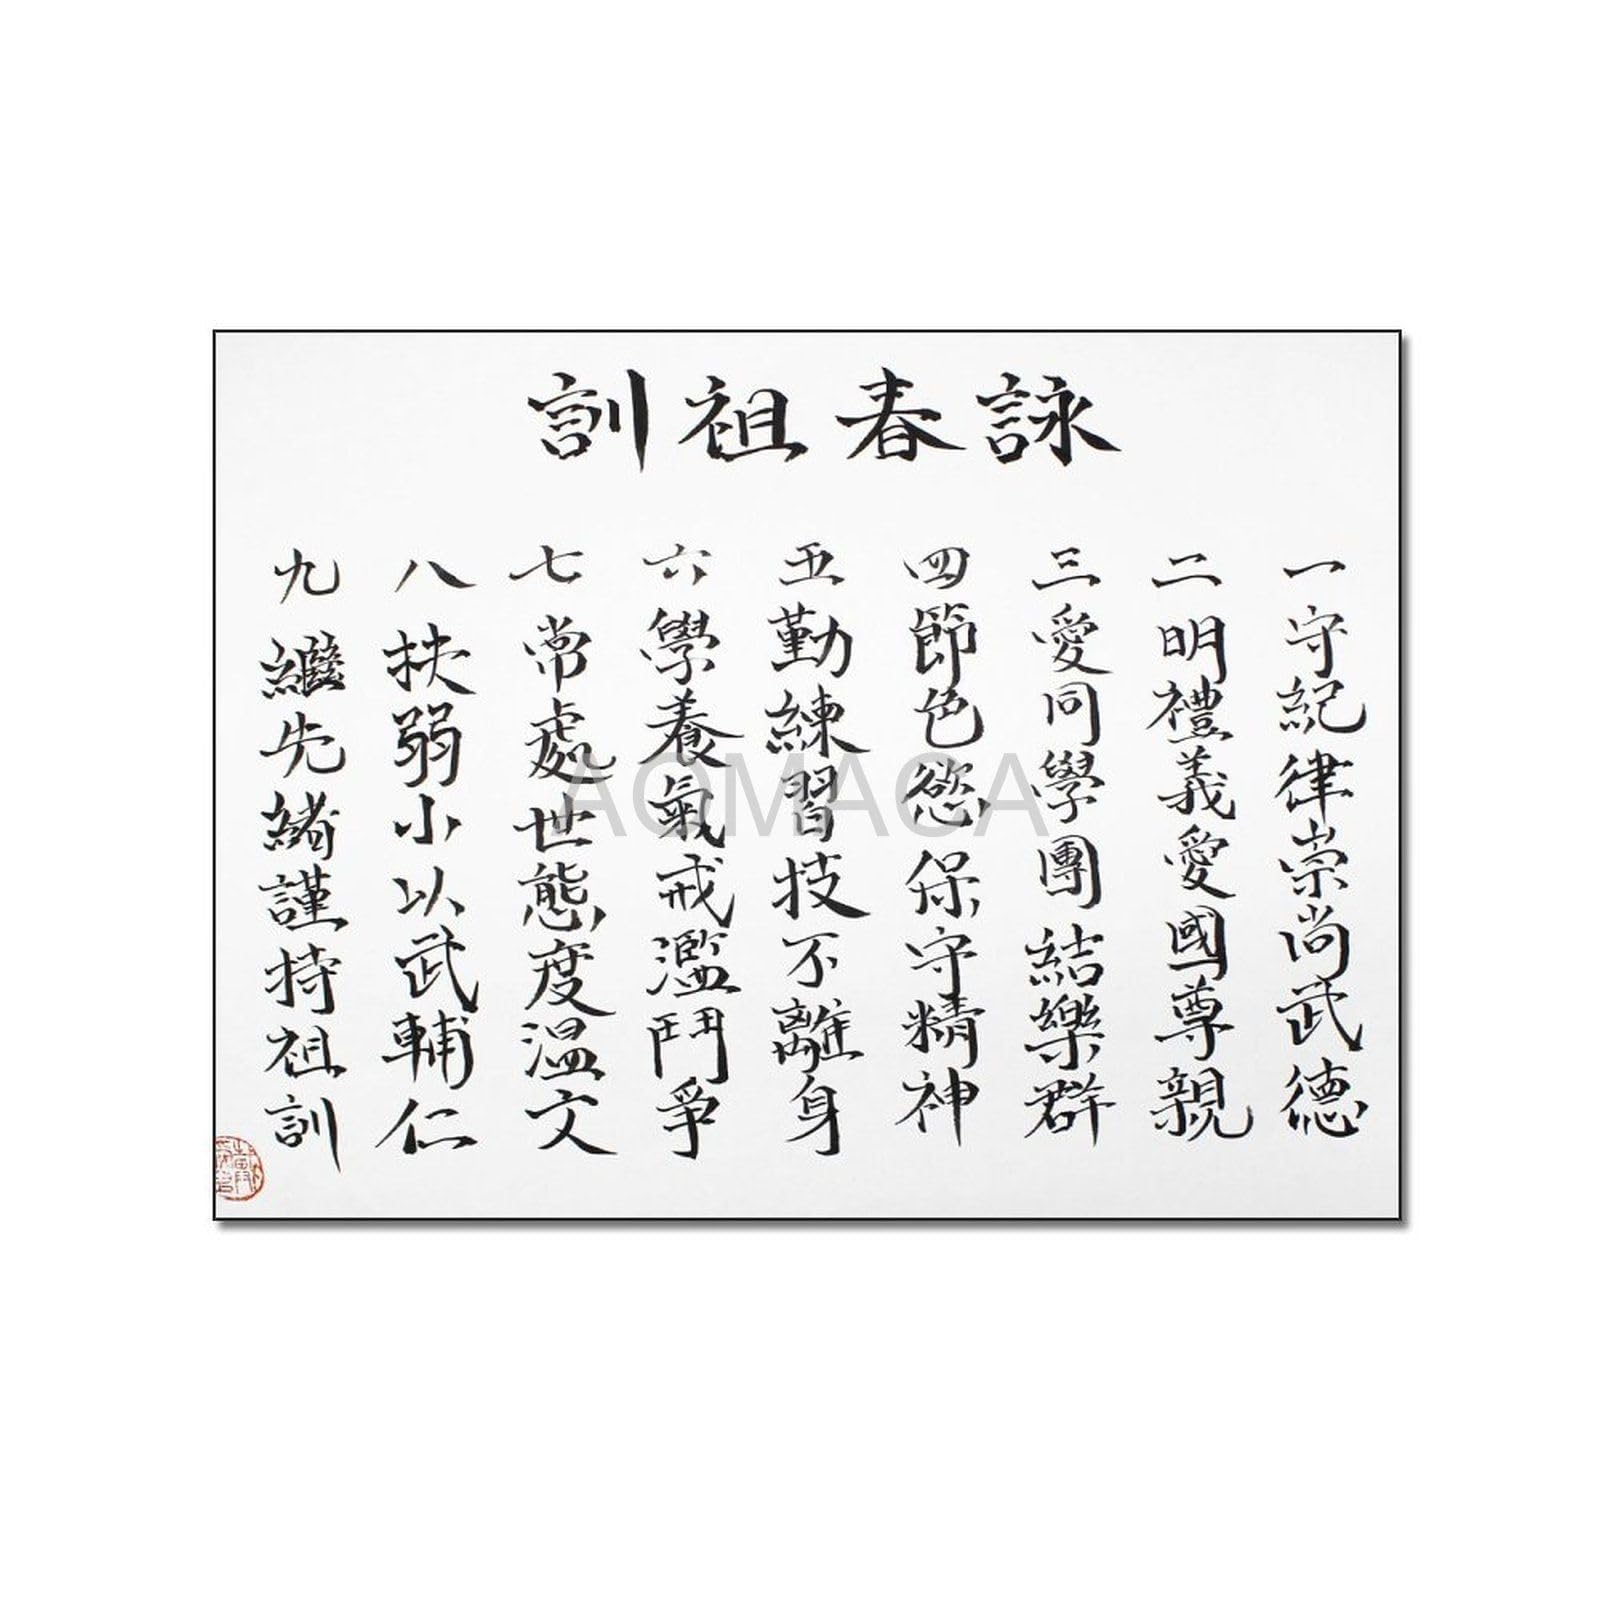 詠春祖訓
一守紀律崇尚武德
二明禮義愛國尊親
三愛同學團結樂群
四節色慾保守精神
五勤練習技不離身
六學養氣戒濫鬥爭
七常處世態度溫文
八扶弱小以武輔仁
九繼先緒謹持祖訓
AOMACA